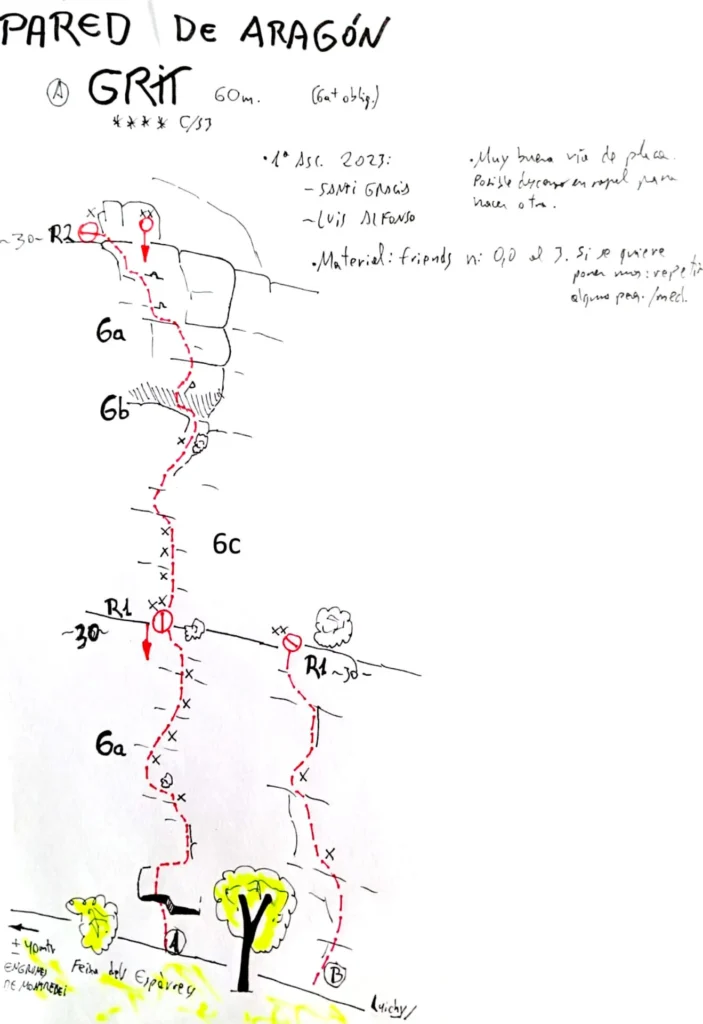 PARED DE ARAGÓN
Ⓐ GRIT 60m. (6a+ oblig.)
**** C/S3
• 1ª Asc. 2023:
– SANTI GRACIA
– LUIS ALFONSO
• Muy buena vía de placa.
Posible descenso en rapel para
hacer otra.
• Material: friends nº 0,0 al 3. Si se quiere
poner más: repetir
alguno peq./med.
xx
~30~ R2
6a
6b
6c
R1
~30~
xx
xx
R1 ~30~
6a
Ⓐ
Ⓑ
± 40 mtr
DE MONTREBEI
Feixa dels Espàrrecs
Luichy/